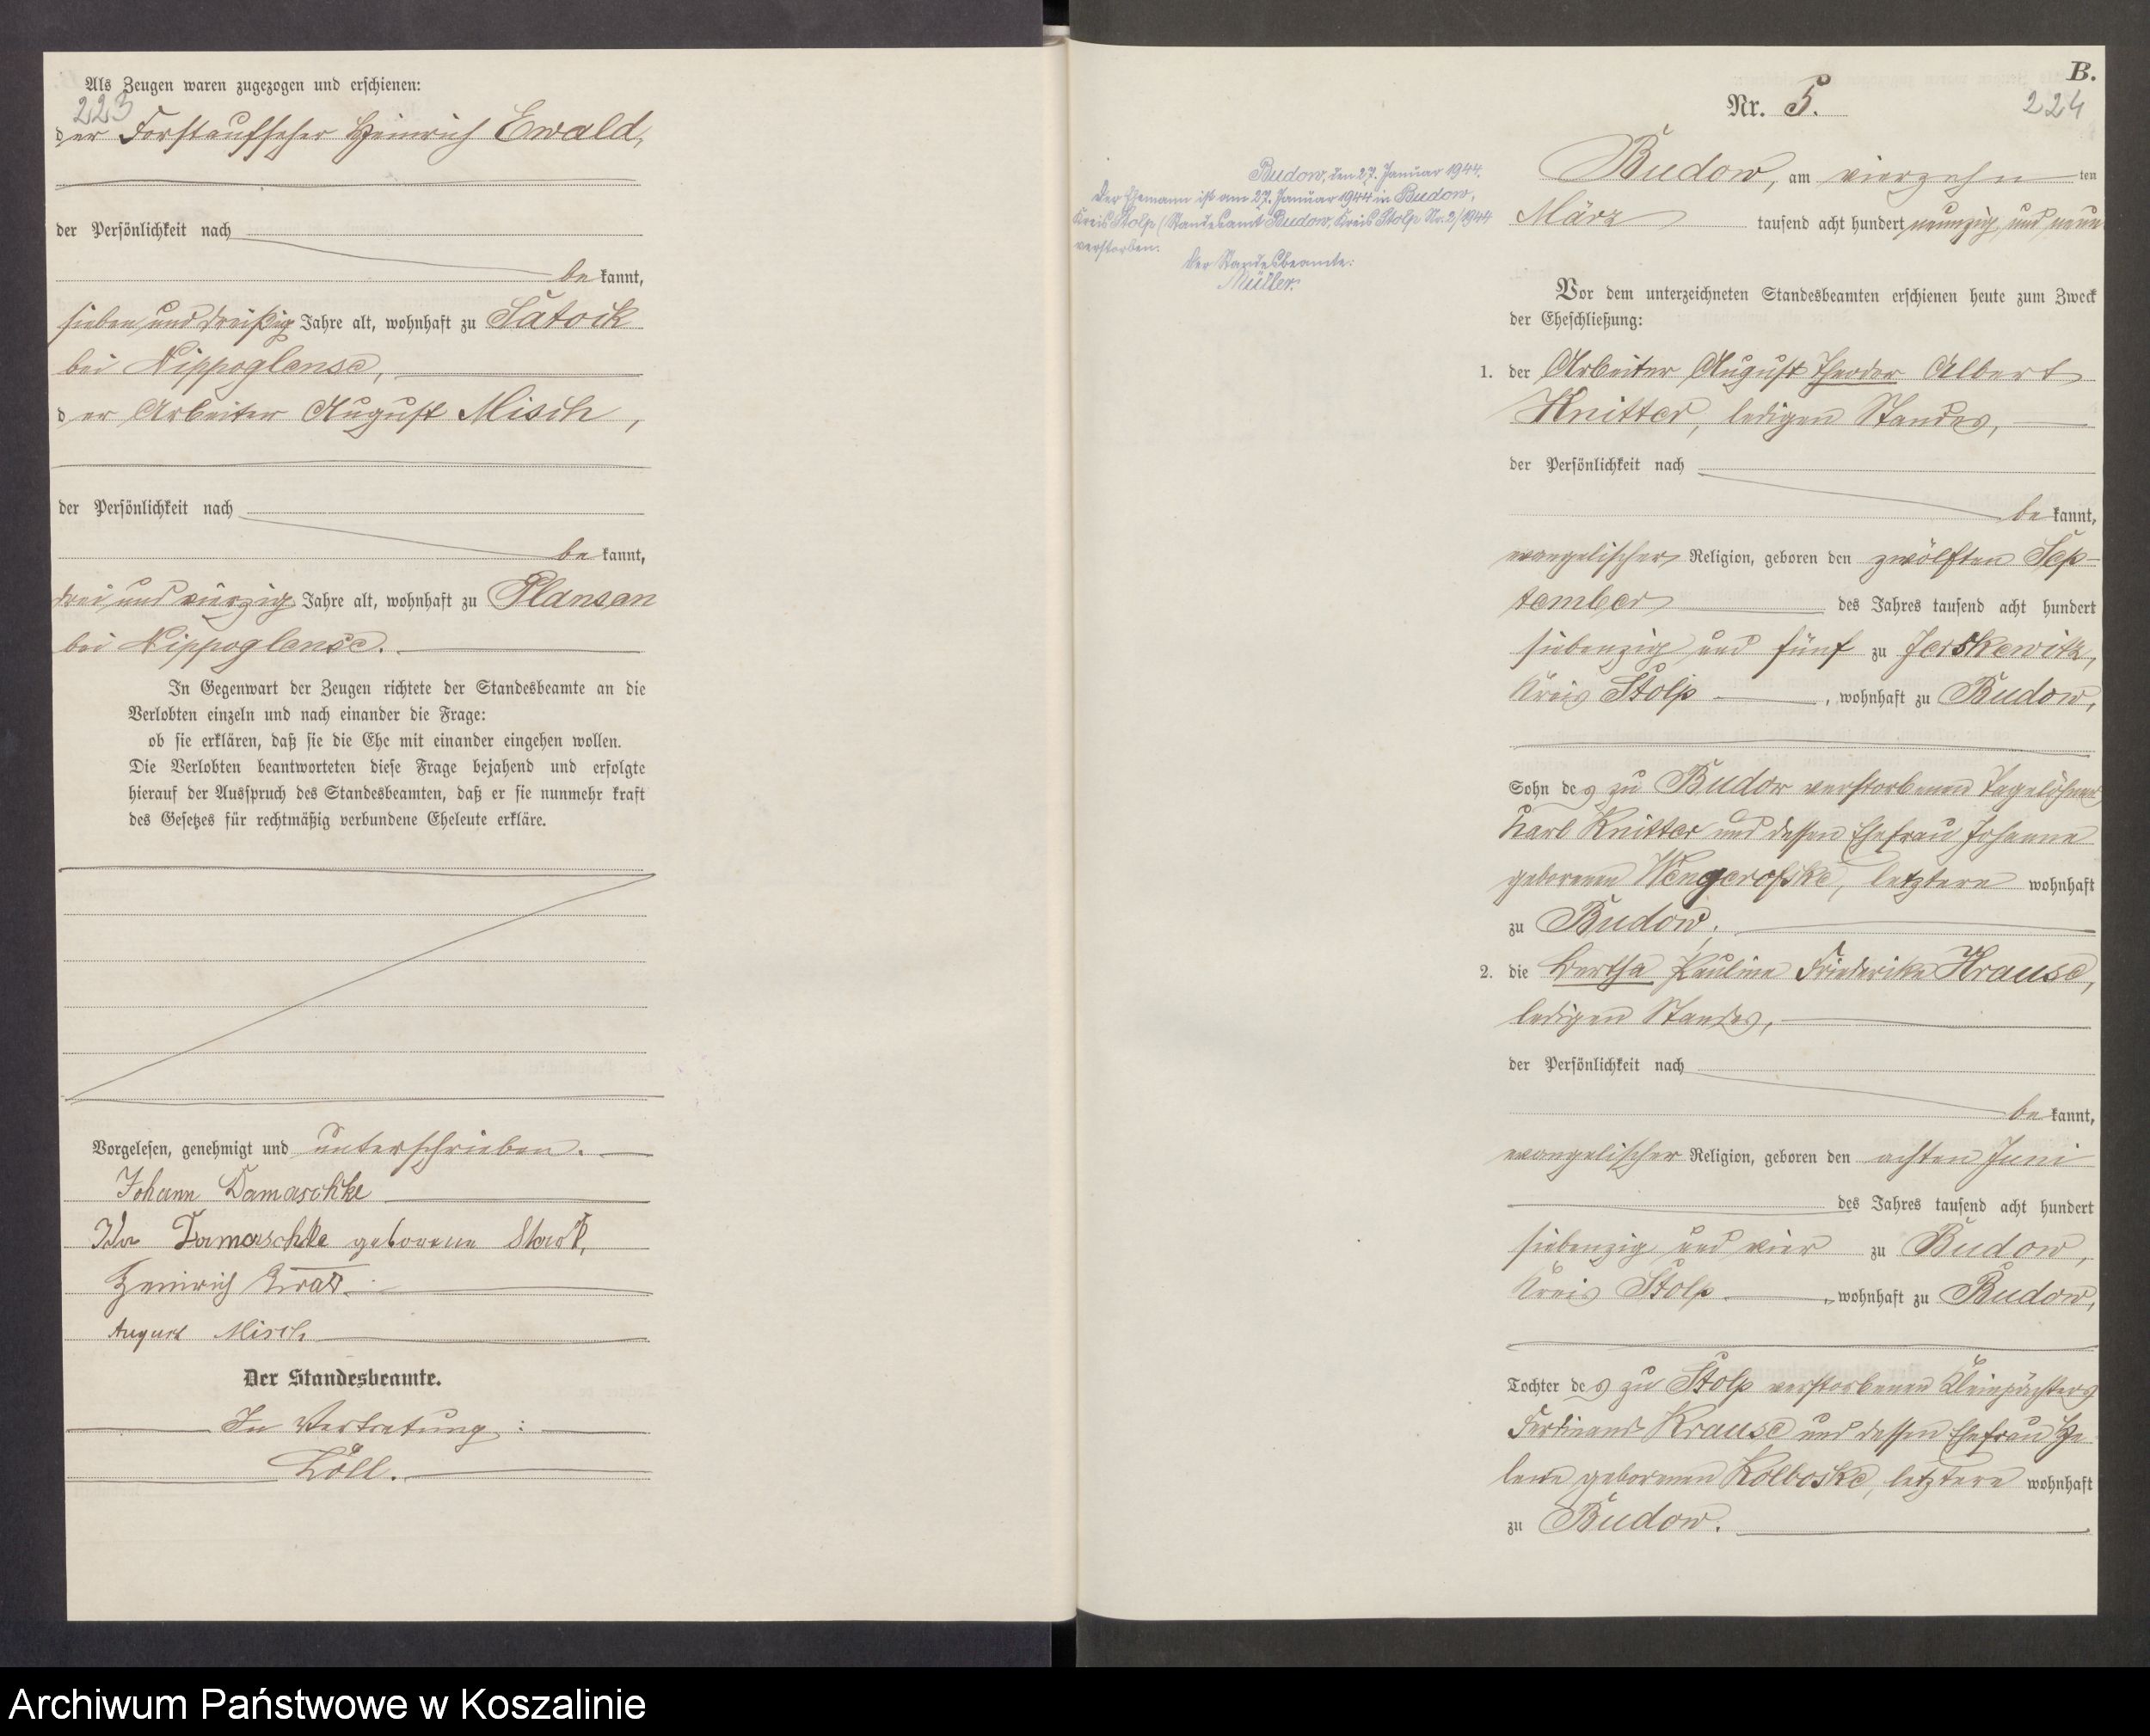 Als Zeugen waren zugezogen und erschienen:
223
der Forstaufseher Heinrich Ewald,
der Persönlichkeit nach
bekannt,
sieben und dreißig Jahre alt, wohnhaft zu Satock
bei Nippoglense,
der Arbeiter August Misch,
der Persönlichkeit nach
bekannt,
drei und vierzig Jahre alt, wohnhaft zu Plansan
bei Nippoglense.
In Gegenwart der Zeugen richtete der Standesbeamte an die
Verlobten einzeln und nach einander die Frage:
ob sie erklären, daß sie die Ehe mit einander eingehen wollen.
Die Verlobten beantworteten diese Frage bejahend und erfolgte
hierauf der Ausspruch des Standesbeamten, daß er sie nunmehr kraft
des Gesetzes für rechtmäßig verbundene Eheleute erkläre.
Vorgelesen, genehmigt und unterschrieben.
Johann Damaschke
Ida Damaschke geborene
Heinrich
August Misch
Der Standesbeamte.
In Vertretung:
Löll.
B.
Nr. 5.
224
Budow, am vierzehnten
März tausend acht hundert neunzig und neun
Budow, den 27. Januar 1944.
Der Ehemann ist am 27. Januar 1944 in Budow,
Kreis Stolp (Standesamt Budow, Kreis Stolp Nr. 2/1944
verstorben.
Der Standesbeamte:
Müller.
Vor dem unterzeichneten Standesbeamten erschienen heute zum Zweck
der Eheschließung:
1. der Arbeiter August Theodor Albert
Knitter, ledigen Standes,
der Persönlichkeit nach
bekannt,
evangelischer Religion, geboren den zwölften Sep-
tember des Jahres tausend acht hundert
siebenzig und fünf zu Jerskewitz,
Kreis Stolp, wohnhaft zu Budow,
Sohn des zu Budow verstorbenen Tagelöhners
Karl Knitter und dessen Ehefrau Johanne
geborenen Wengerofske, letztere wohnhaft
zu Budow.
2. die Bertha Pauline Friederike Krause,
ledigen Standes,
der Persönlichkeit nach
bekannt,
evangelischer Religion, geboren den achten Juni
des Jahres tausend acht hundert
siebenzig und vier zu Budow,
Kreis Stolp, wohnhaft zu Budow,
Tochter des zu Stolp verstorbenen Kleinpächters
Ferdinand Krause und dessen Ehefrau He-
lene geborenen Kolboske, letztere wohnhaft
zu Budow.
Archiwum Państwowe w Koszalinie